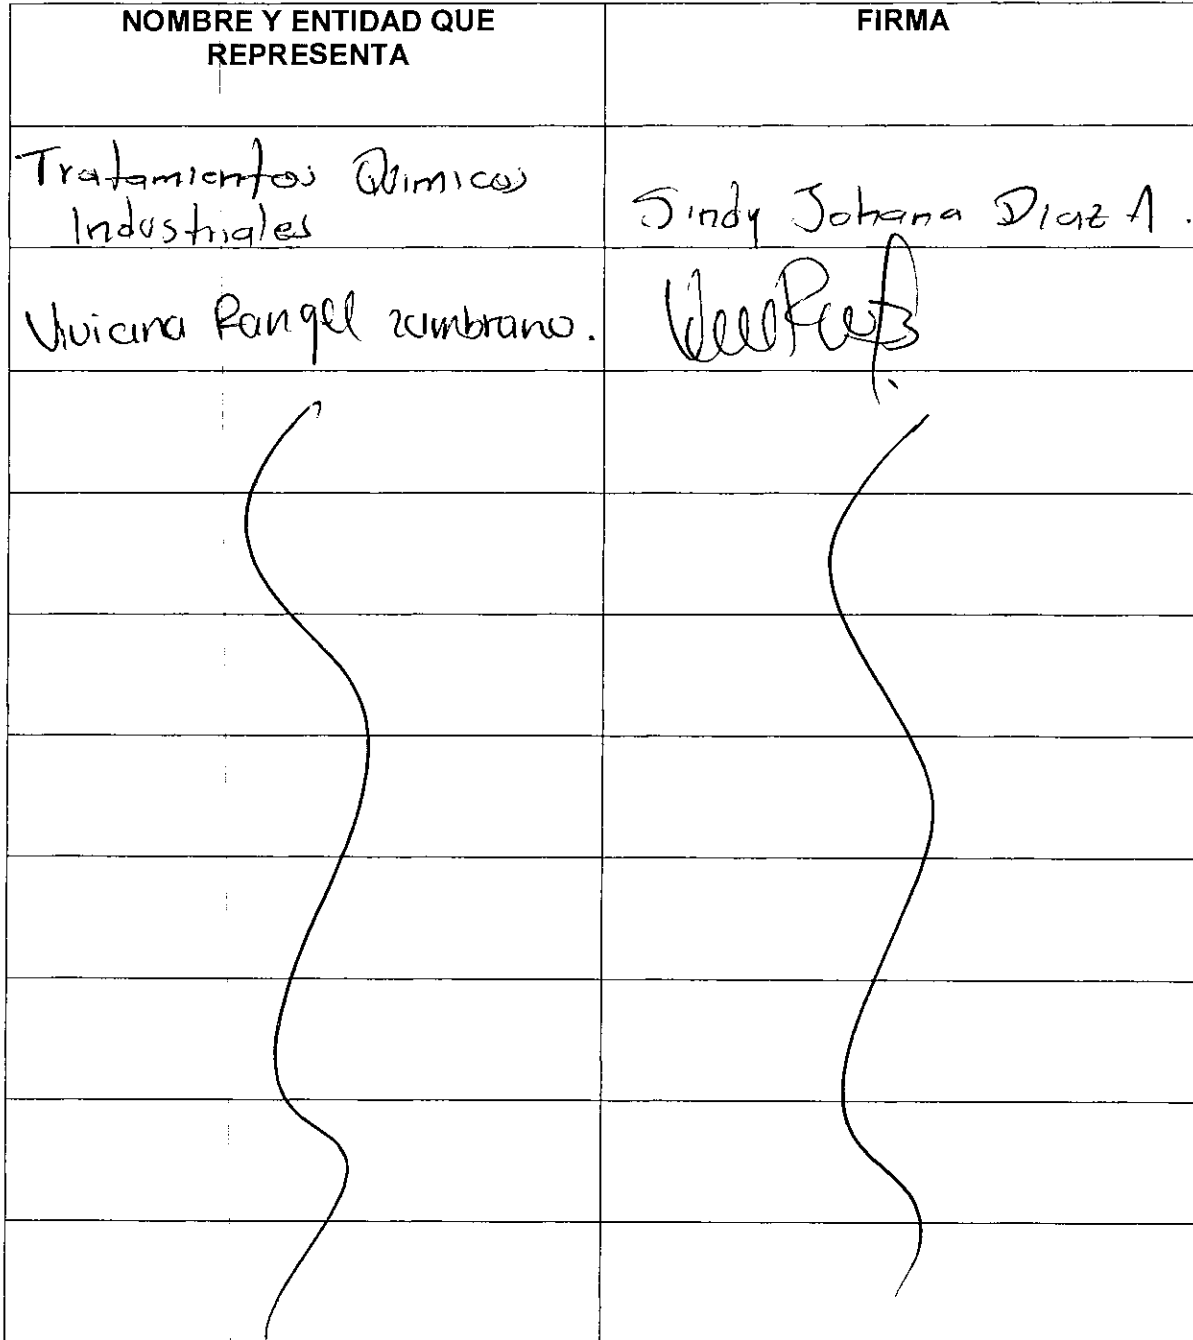 NOMBRE Y ENTIDAD QUE
REPRESENTA
FIRMA
Tratamientos Quimicos
Industriales
Sindy Johana Diaz A.
Viviana Rangel zambrano.